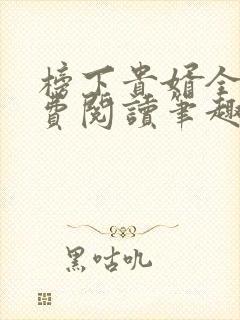 榜下貴婿全
費閱讀筆趣
黑咕吼